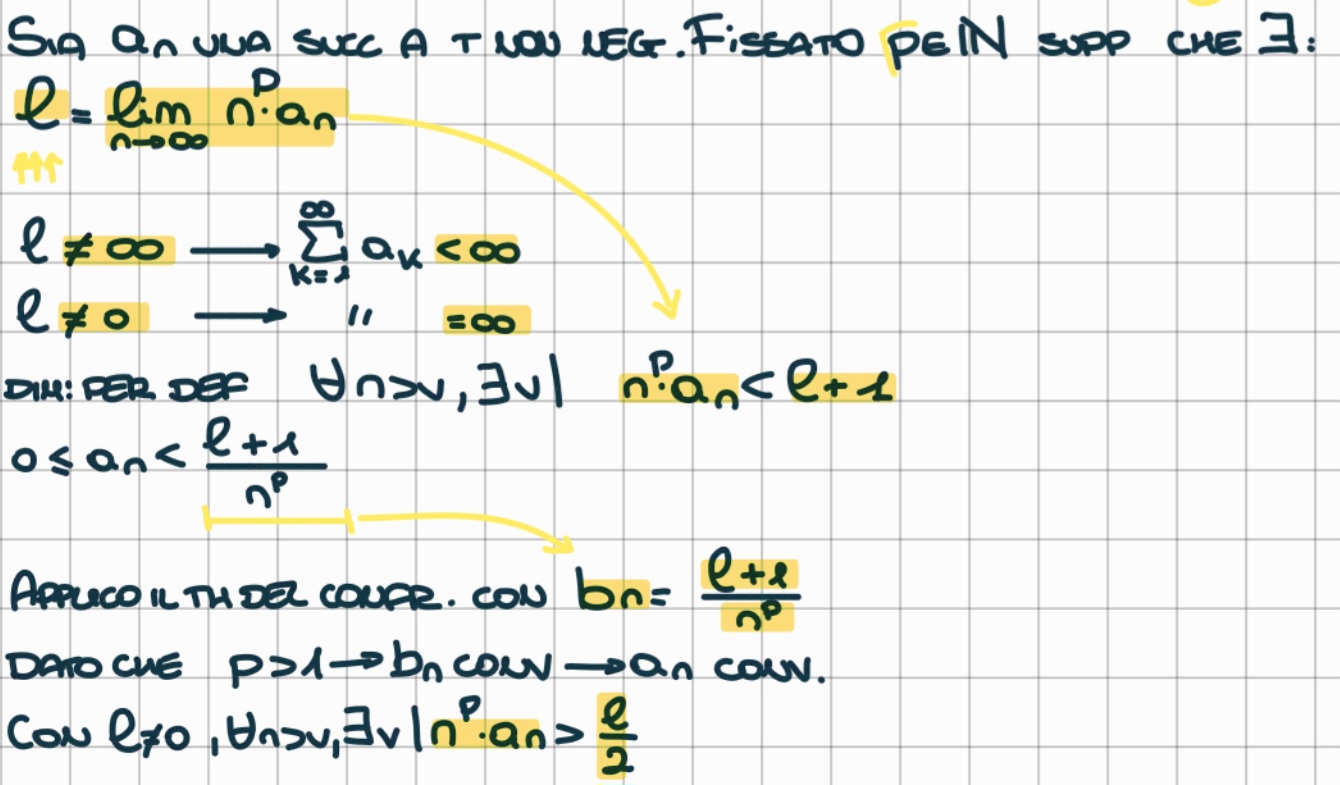 SIA an UNA SUCC A T NON NEG. FISSATO p∈ℕ SUPP CHE ∃:
ℓ = lim n→∞ n^p·an
ℓ ≠ ∞ → ∑ k=1 ∞ ak < ∞
ℓ ≠ 0 → " = ∞
DIM: PER DEF ∀n>ν, ∃ν| n^p·an < ℓ+1
0 ≤ an < ℓ+1 / n^p
APPLICO IL TH DEL CONFR. CON bn = ℓ+1 / n^p
DATO CHE p>1 → bn CONV → an CONV.
CON ℓ≠0, ∀n>ν, ∃ν | n^p·an > ℓ/2